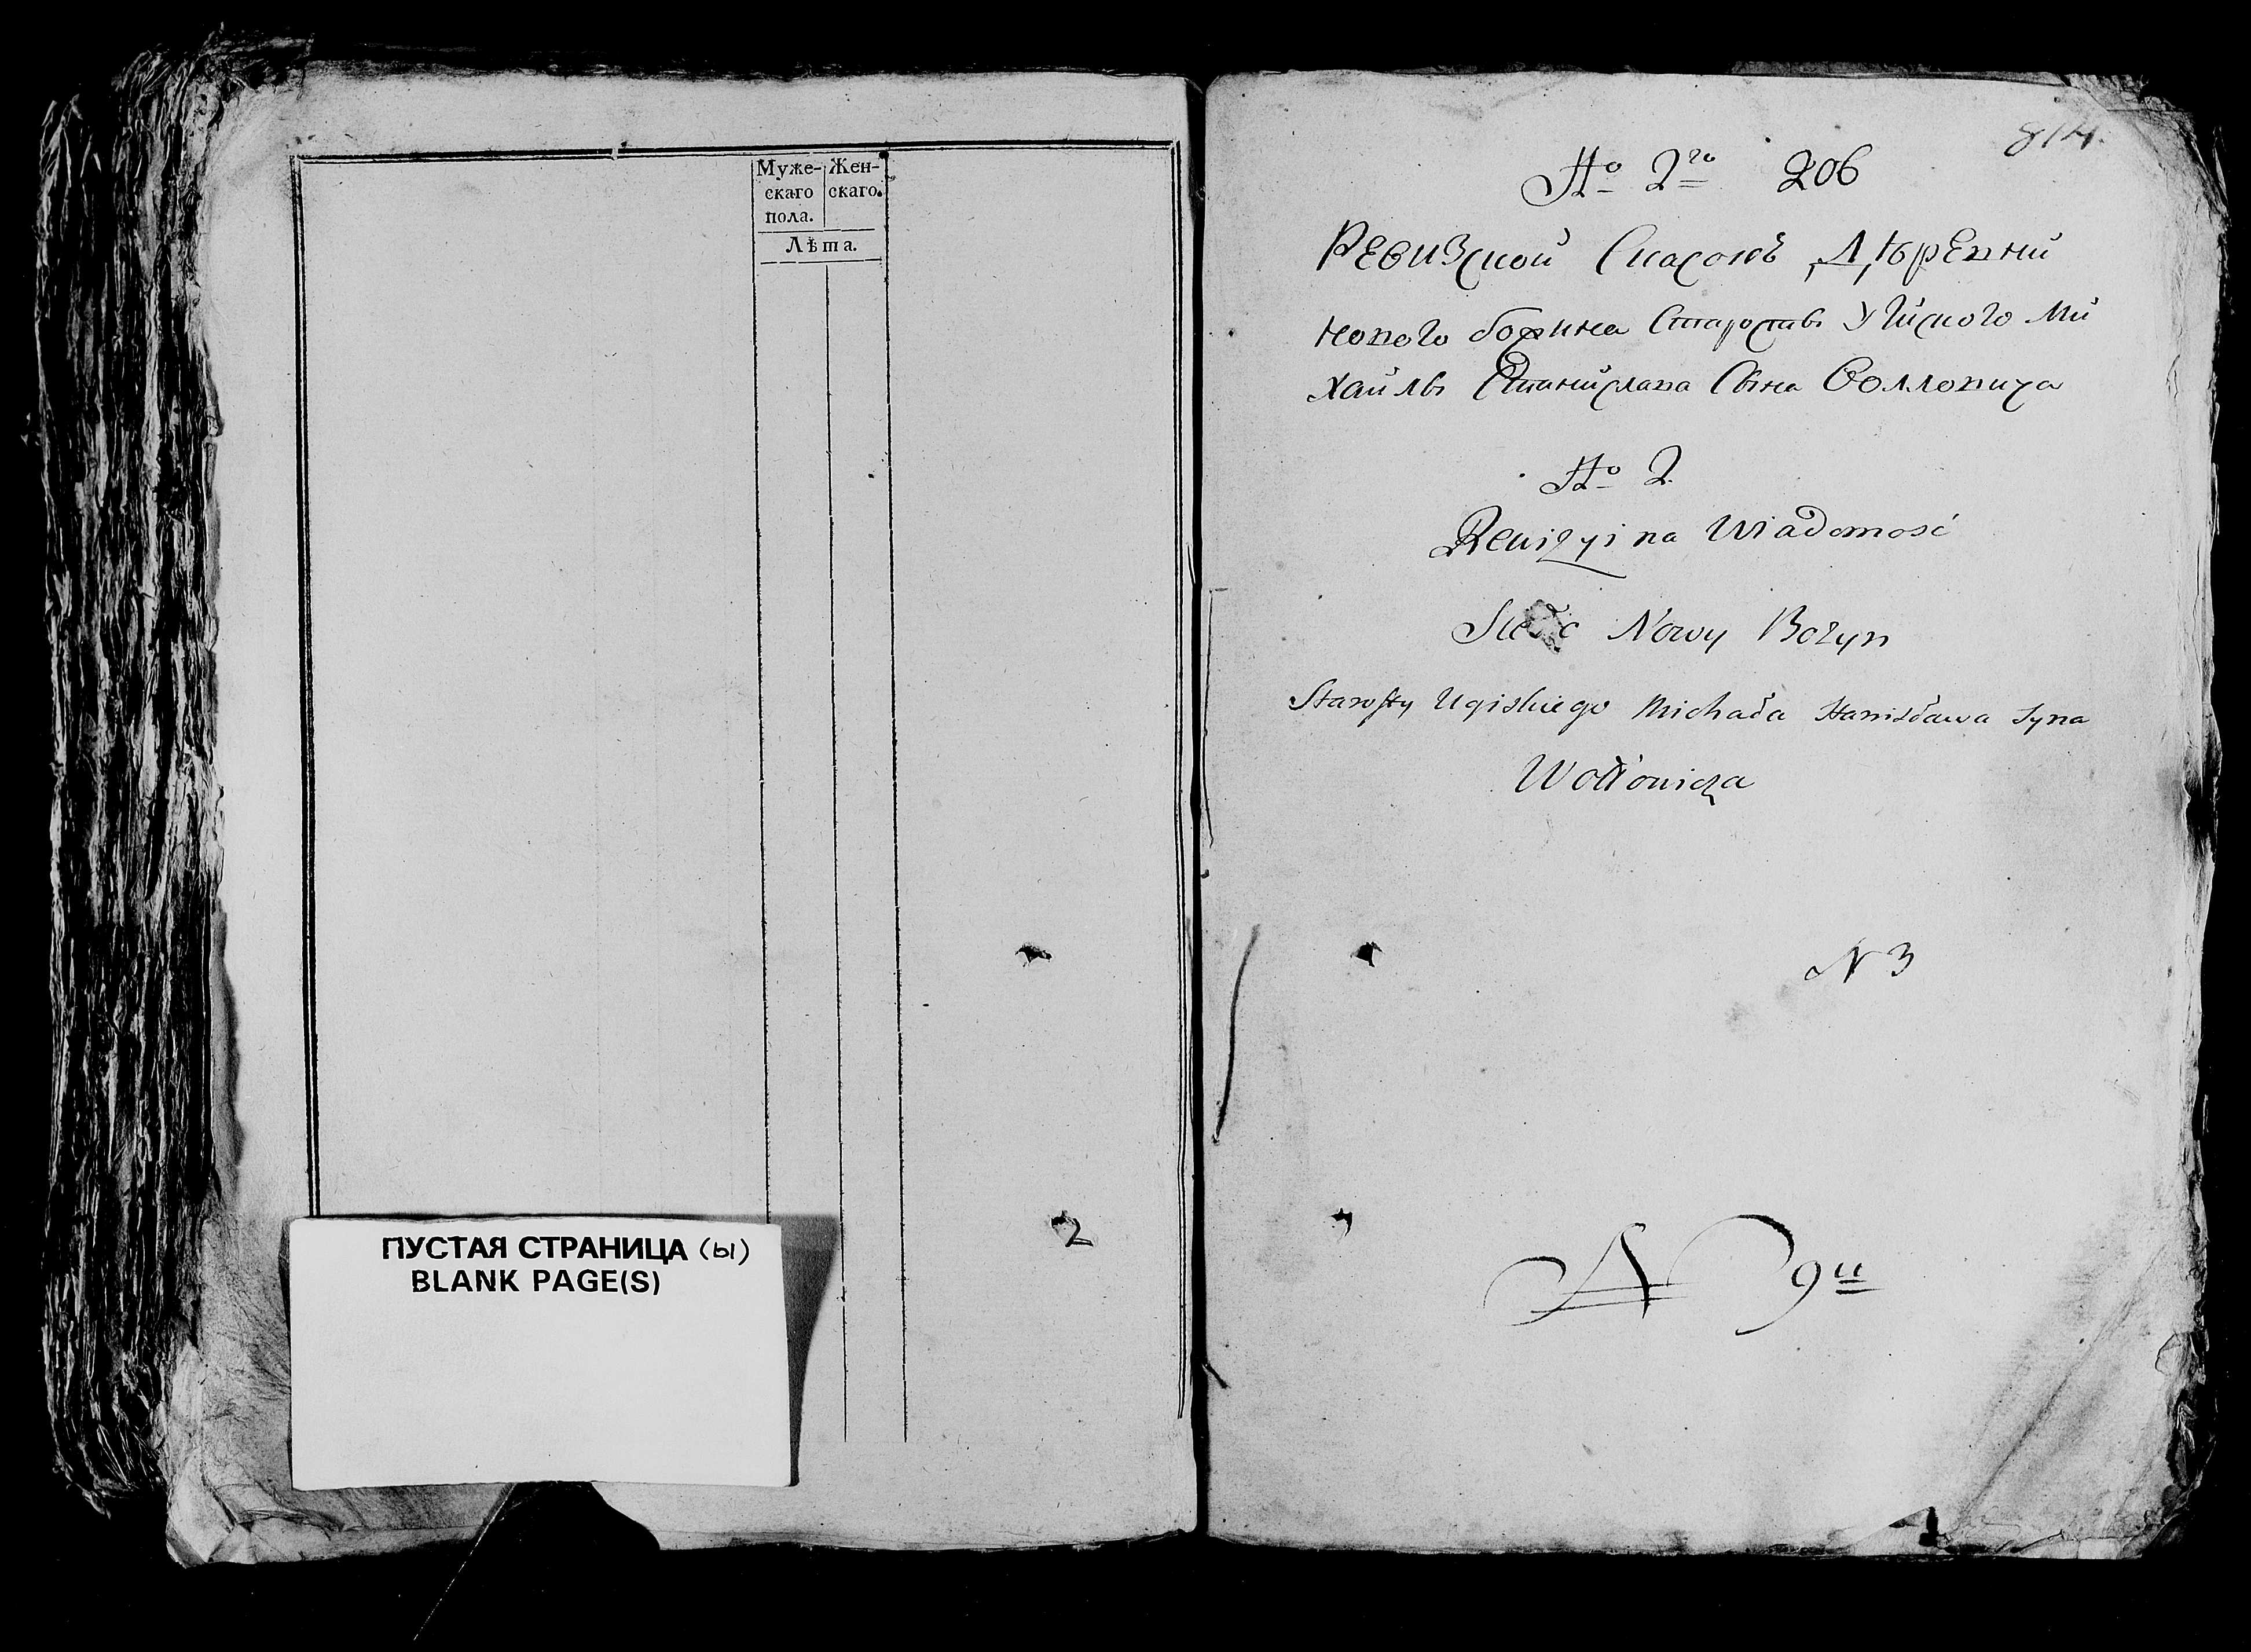 Муже- Жен-
скаго скаго.
пола.
Лѣта.
2
ПУСТАЯ СТРАНИЦА (ы)
BLANK PAGE(S)
814.
No 2го 206
Ревизской Скасокъ Дѣревни
Нового божина Старосты Угиского Ми
хайлы Станислава Сына Волловича
No 2.
Rewizyina Wiadomosć
Nowy Bozyn
Starosty Ugiskiego Michała Stanisława Syna
Wołłowicza
N 3
N 9и